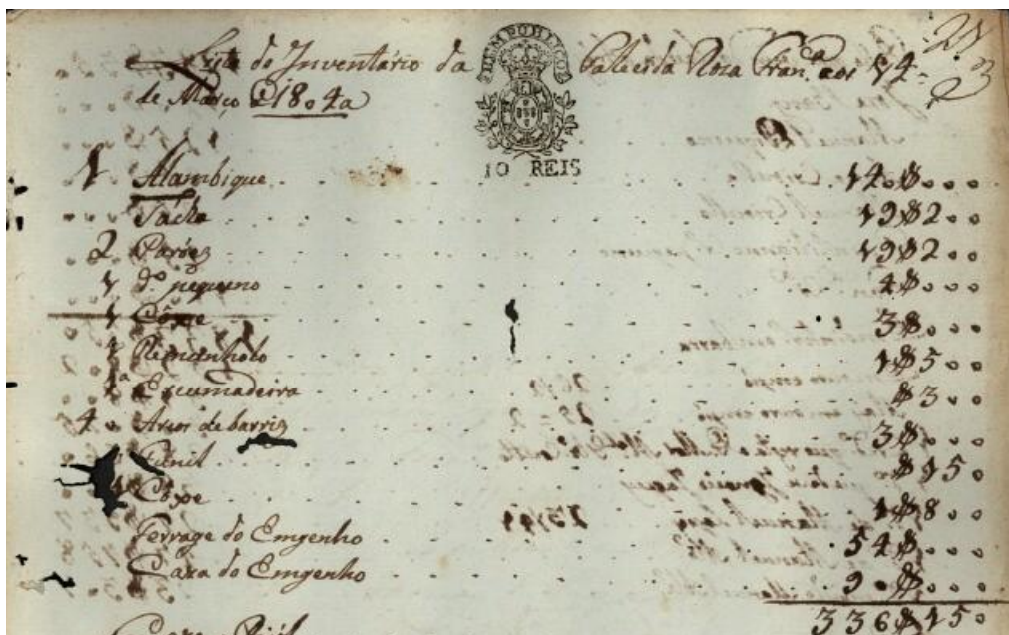 Liste do Inventário da Falecida Roza Fran.ca aos 14
de Março d 1804a
10 REIS
1 Alambique 140$000
1 Tacho 19$200
2 Paróes 19$200
1 d.o pequeno 4$000
1 Côxe 3$000
1 Remanholo 1$500
1a Escumadeira $300
4 Arcos de barris 3$000
1 Funil $150
1 Côxe 1$800
Ferrage do Emgenho 54$000
Caza do Emgenho 90$000
336$150